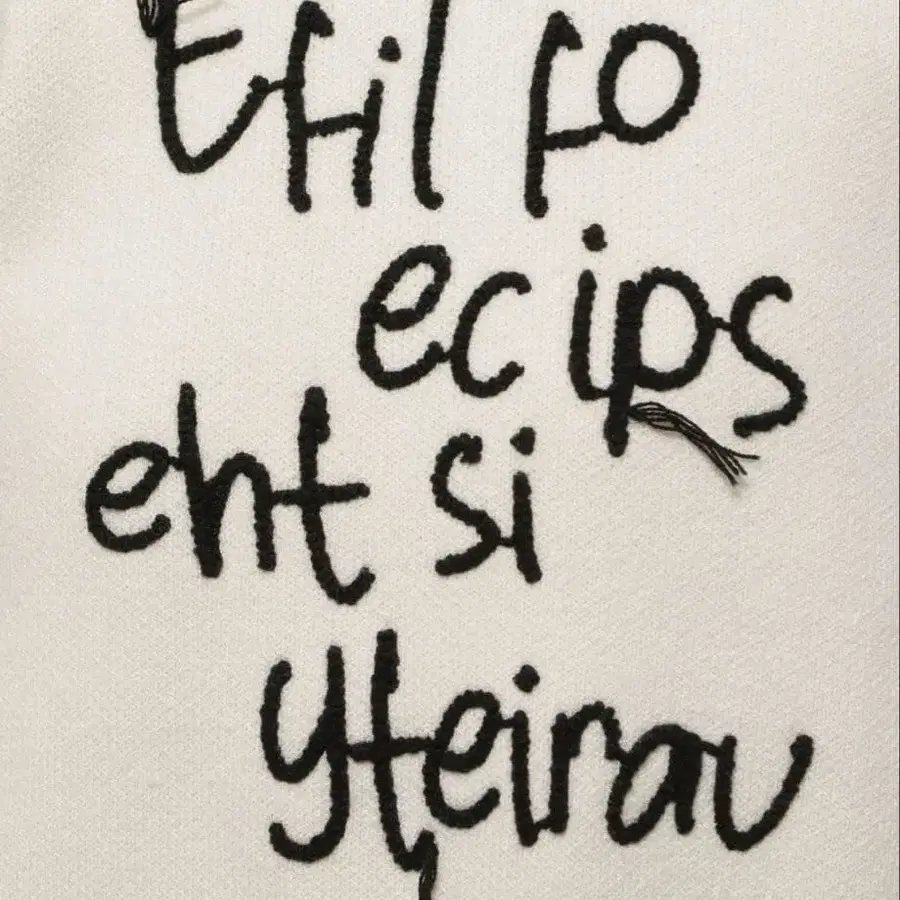 Efil fo
ecips
eht si
yteirav